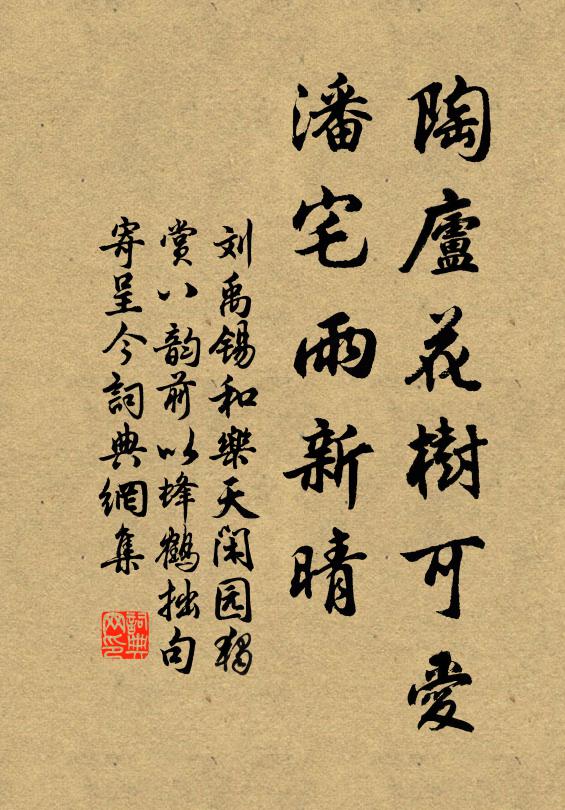 陶廬花樹可愛
潘宅雨新晴
刘禹锡和樂天闲园獨
賞八韵前以蜂鶴拙句
寄呈今詞典網集
詞典
网印